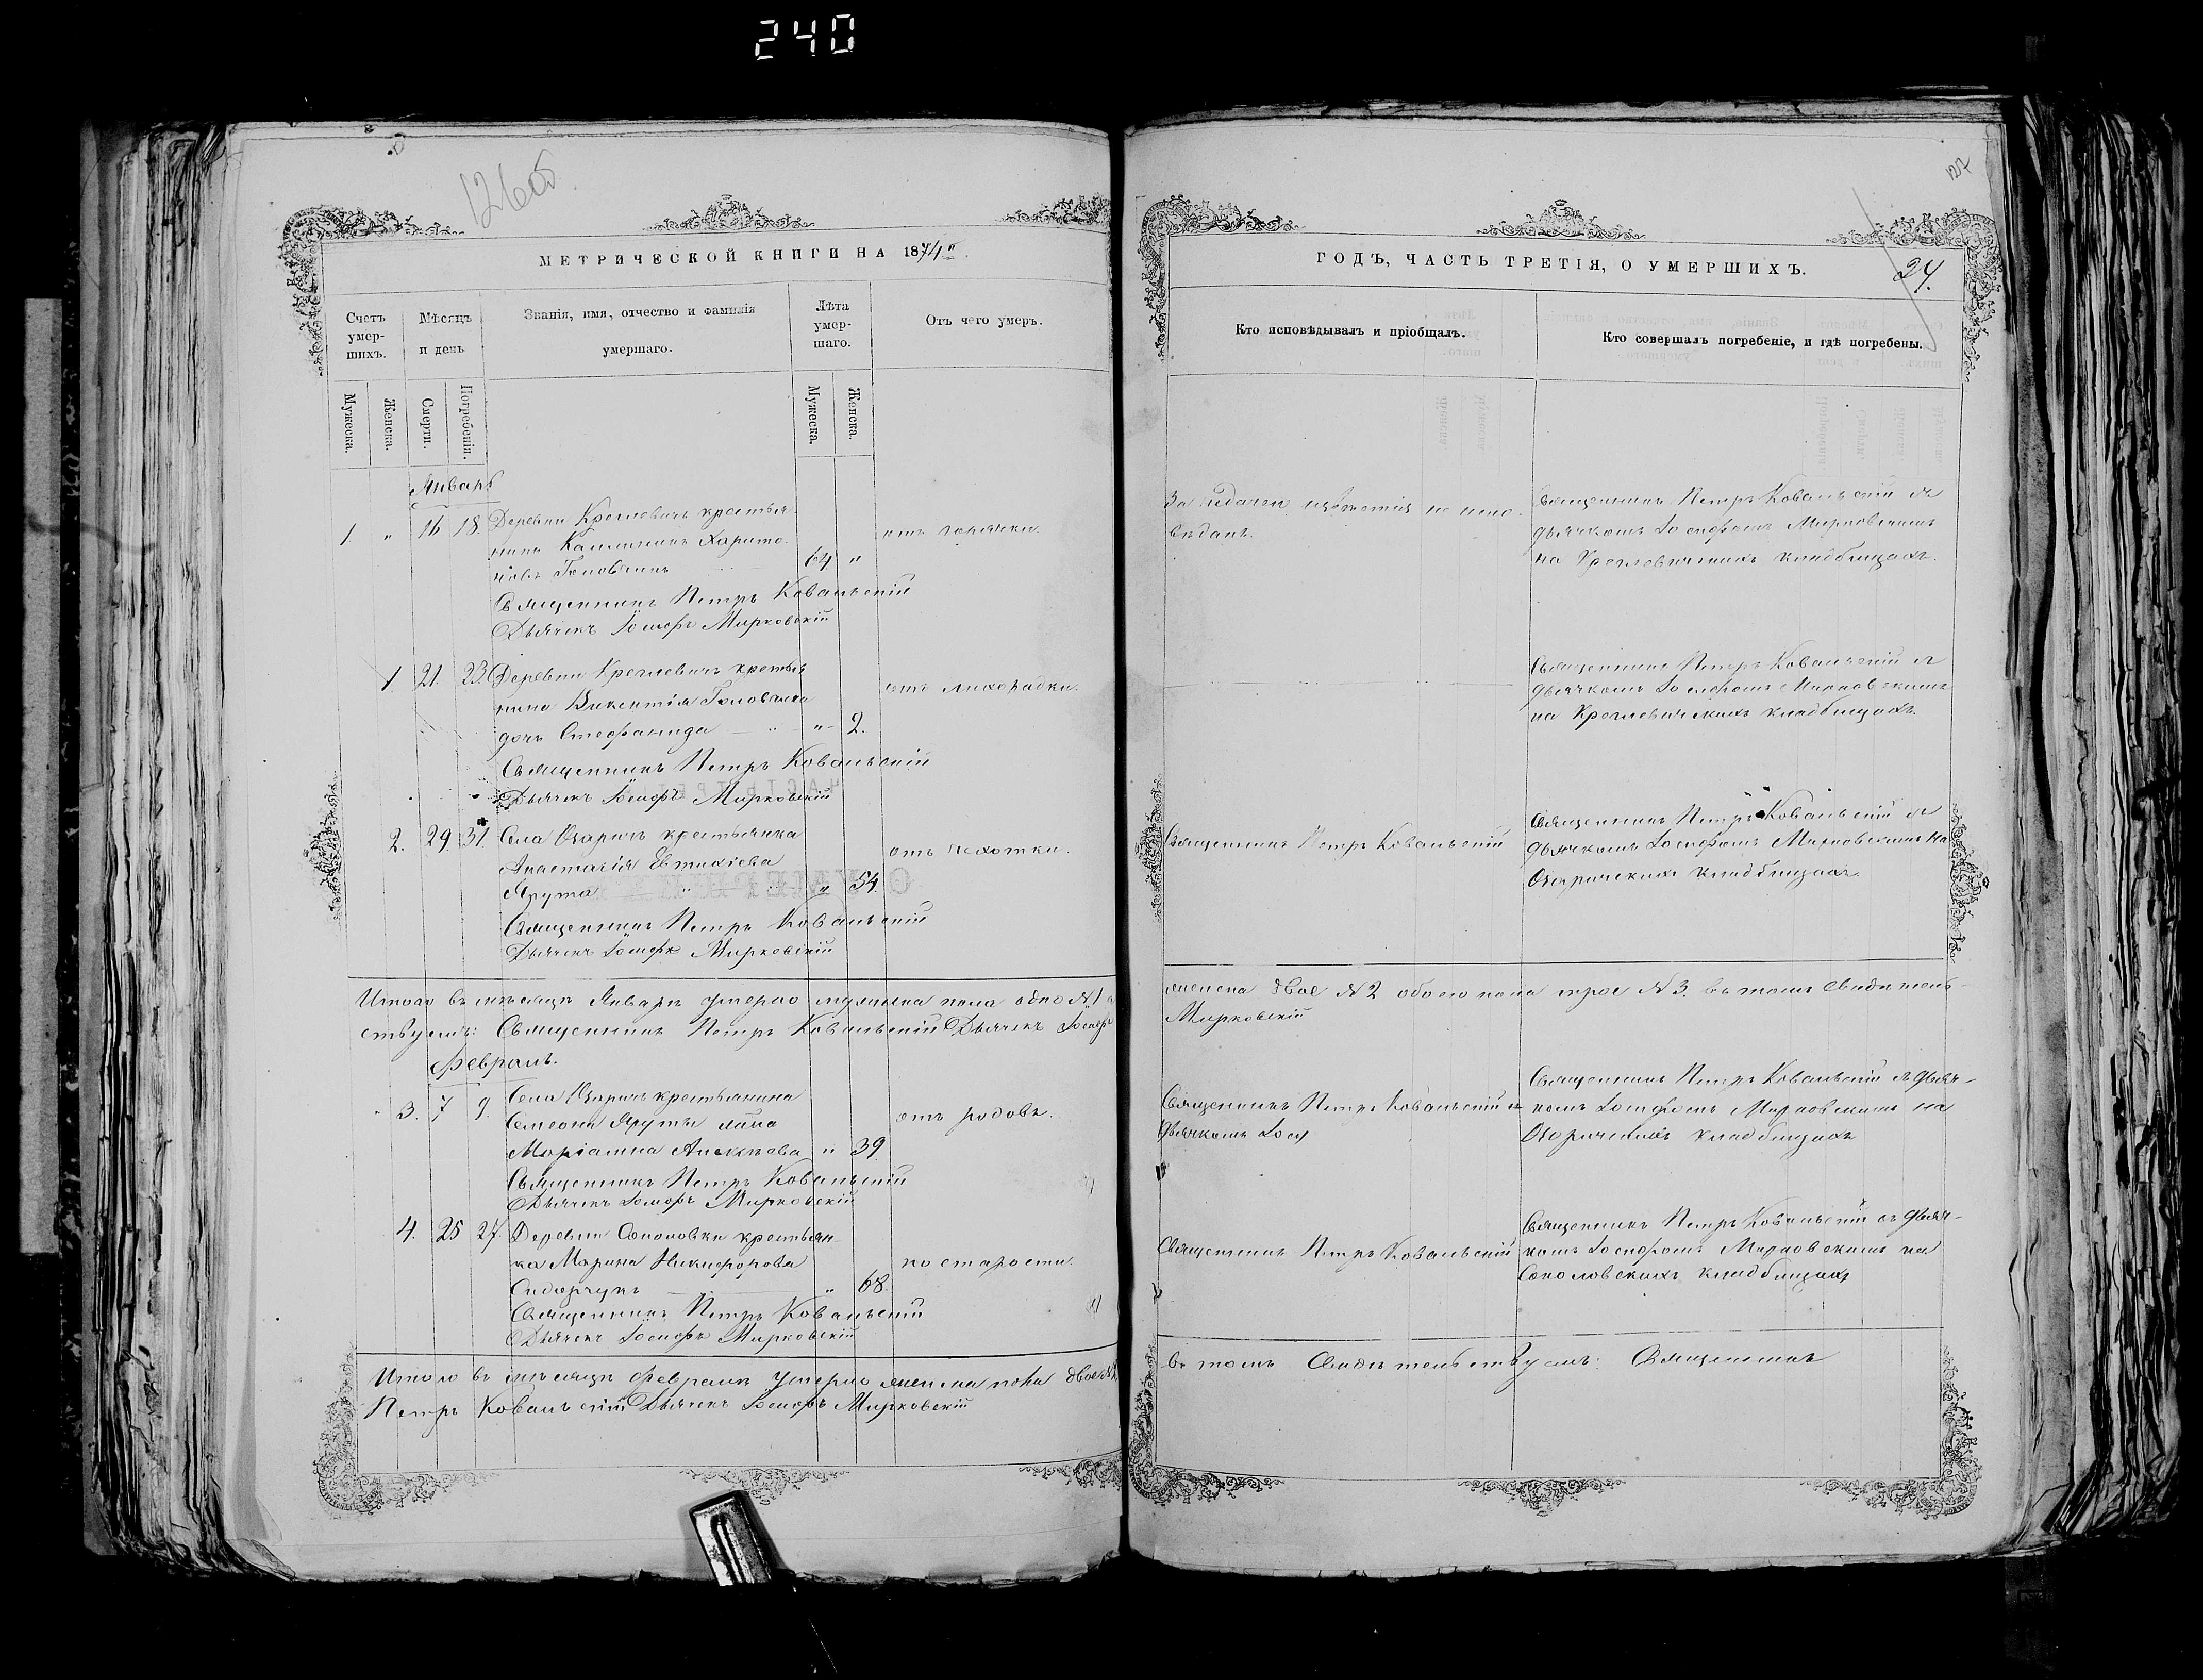 240
126об
127
МЕТРИЧЕСКОЙ КНИГИ НА 1874й
ГОДЪ, ЧАСТЬ ТРЕТІЯ, О УМЕРШИХЪ.
24.
Счетъ умер-
шихъ.
Мѣсяцъ
и день
Званія, имя, отчество и фамилія
умершаго.
Лѣта
умер-
шаго.
Отъ чего умеръ.
Кто исповѣдывалъ и пріобщалъ.
Кто совершалъ погребеніе, и гдѣ погребены.
Мужеска.
Женска.
Смерти.
Погребенія.
Мужеска.
Женска.
Январь
1 " 16 18. Деревни Креглевичъ крестья-
нинъ Харито-
новъ 64 "
отъ горячки.
Священникъ Петръ Ковальскій
Дьячекъ Іосифъ Мирковскій
вѣданъ.
Священникъ Петръ Ковальскій съ
дьячкомъ Іосифомъ Мирковскимъ
на кладбищахъ.
1. 21. 23. Деревни Креглевичъ крестья
нина Викентія
дочь Стефанида " 2.
отъ лихорадки.
Священникъ Петръ Ковальскій
Дьячекъ Іосифъ Мирковскій
Священникъ Петръ Ковальскій съ
дьячкомъ Іосифомъ Мирковскимъ
на Креглевическихъ кладбищахъ.
2. 29 31. Села Озаричъ крестьянка
Анастасія Евтихіева
Ярута " 54.
отъ чахотки.
Священникъ Петръ Ковальскій
Дьячекъ Іосифъ Мирковскій
Священникъ Петръ Ковальскій
Священникъ Петръ Ковальскій съ
дьячкомъ Іосифомъ Мирковскимъ на
Озарическихъ кладбищахъ.
Итого въ мѣсяцѣ Январѣ умерло мужеска пола одно №1
женска двое №2 обоего пола трое №3. въ томъ свидѣтель-
ствуемъ: Священникъ Петръ Ковальскій Дьячекъ Іосифъ
Мирковскій
Февраль.
" 3. 7 9. Села Озаричъ крестьянина
Симеона Яруты жена
Маріанна " 39
отъ родовъ.
Священникъ Петръ Ковальскій
Дьячекъ Іосифъ Мирковскій
Священникъ Петръ Ковальскій съ
дьячкомъ Іосиф
Священникъ Петръ Ковальскій съ дьяч-
комъ Іосифомъ Мирковскимъ на
Озарическихъ кладбищахъ
4. 25 27. Деревни Соколовки крестьян-
ка Марина Никифорова
Сидорчукъ " 68.
по старости.
Священникъ Петръ Ковальскій
Дьячекъ Іосифъ Мирковскій
Священникъ Петръ Ковальскій
Священникъ Петръ Ковальскій съ дьяч-
комъ Іосифомъ Мирковскимъ на
Соколовскихъ кладбищахъ
Итого въ мѣсяцѣ Февралѣ умерло женска пола двое
въ томъ Свидѣтельствуемъ: Священникъ
Петръ Ковальскій Дьячекъ Іосифъ Мирковскій